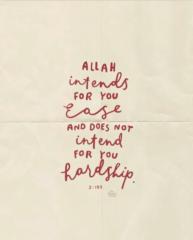 ALLAH
intends
FOR YOU
Ease
AND DOES NOT
intend
FOR YOU
hardship.
2:185